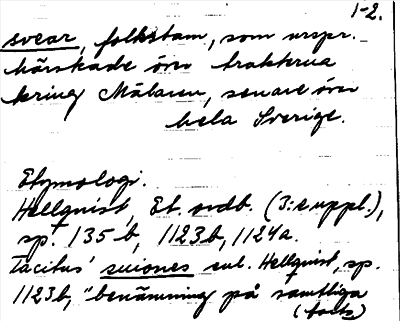 1-2.
svear, folkstam, som urspr.
härskade över trakterna
kring Mälaren, senare över
hela Sverige.
Etymologi.
Hellquist, Et. ordb. (3:e uppl.),
sp. 135 b, 1123 b, 1124 a.
Tacitus' suiones enl. Hellquist, sp.
1123 b, "benämning på samtliga
(forts)